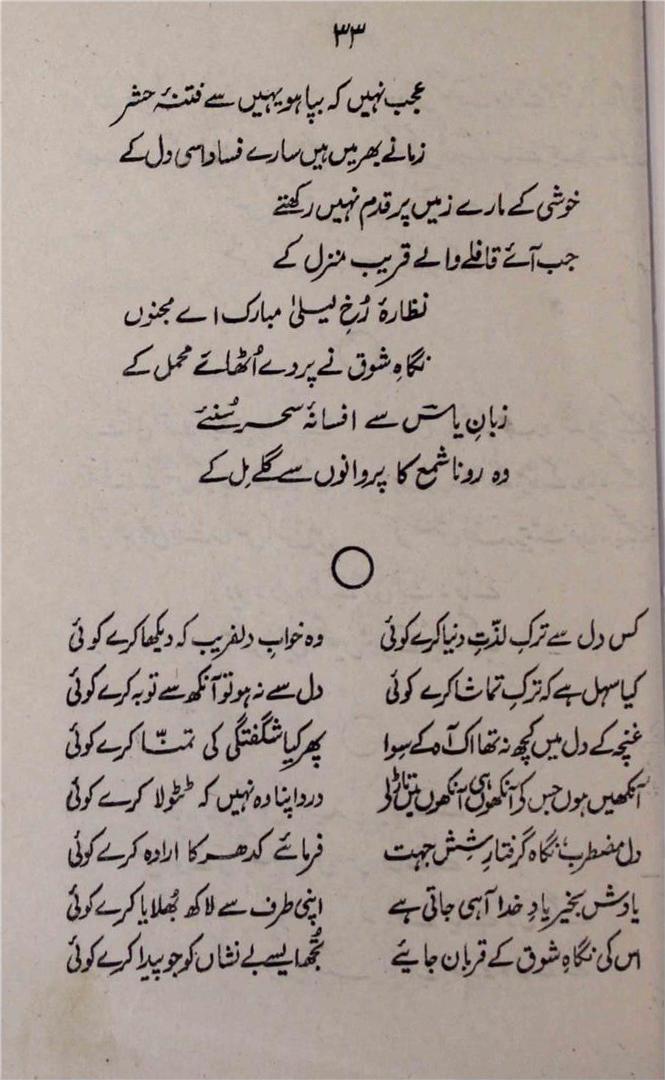 ۳۳
عجب نہیں کہ بپا ہو یہیں سے فتنۂ حشر
زمانے بھر میں ہیں سارے فساد اسی دل کے
خوشی کے مارے زمیں پر قدم نہیں رکھتے
جب آئے قافلے والے قریب منزل کے
نظارۂ رُخِ لیلیٰ مبارک اے مجنوں
نگاہِ شوق نے پردے اُٹھائے محمل کے
زبانِ یاسؔ سے افسانۂ سحر سُنئے
وہ رونا شمع کا پروانوں سے گلے مِل کے
کس دل سے ترکِ لذّتِ دنیا کرے کوئی وہ خوابِ دلفریب کہ دیکھا کرے کوئی
کیا سہل ہے کہ ترکِ تماشا کرے کوئی دل سے نہ ہو تو آنکھ سے توبہ کرے کوئی
غنچہ کے دل میں کچھ نہ تھا اک آہ کے سِوا پھر کیا شگفتگی کی تمنّا کرے کوئی
آنکھیں ہوں جس کو آنکھوں ہی آنکھوں میں تاڑ لے درد اپنا وہ نہیں کہ ٹٹولا کرے کوئی
دل مضطرب نگاہ گرفتارِ شِش جہت فرمائے کدھر کا ارادہ کرے کوئی
یادش بخیر یادِ خدا آ ہی جاتی ہے اپنی طرف سے لاکھ بُھلایا کرے کوئی
اس کی نگاہِ شوق کے قربان جایئے تُجھ ایسے بے نشاں کو جو پیدا کرے کوئی